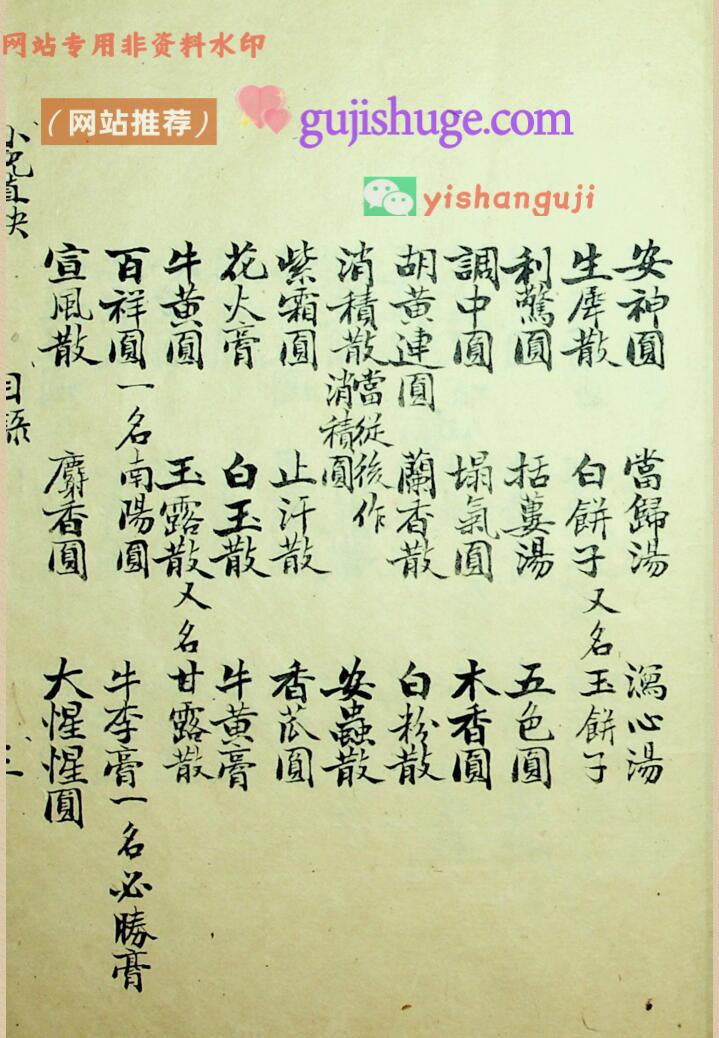 网站专用非资料水印
（网站推荐）
gujishuge.com
yishanguji
安神圓 當歸湯 瀉心湯
生犀散 白餅子又名玉餅子
利驚圓 括蔞湯 五色圓
調中圓 塌氣圓 木香圓
胡黃連圓 蘭香散 白粉散
消積散當從後作消積圓 安蟲散
紫霜圓 止汗散 香苽圓
花火膏 白玉散 牛黃膏
牛黃圓 玉露散又名甘露散
百祥圓一名南陽圓 牛李膏一名必勝膏
宣風散 麝香圓 大惺惺圓